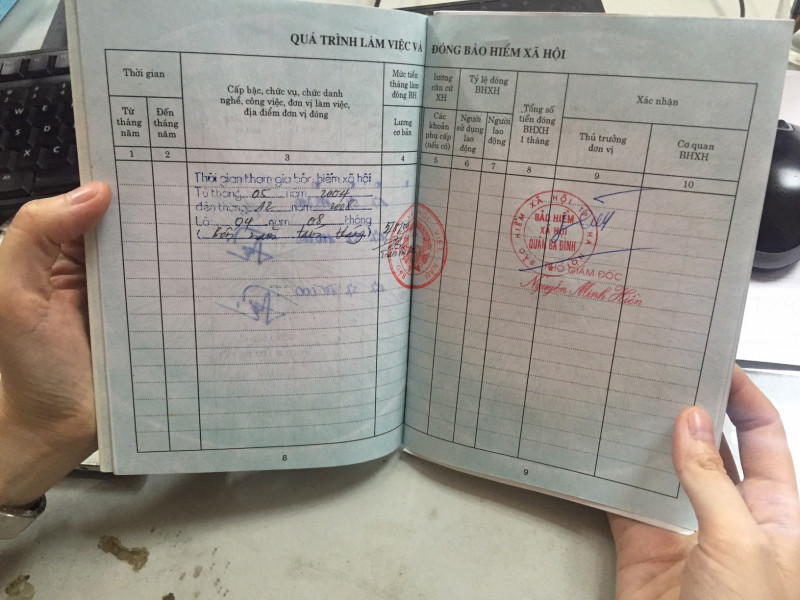 QUÁ TRÌNH LÀM VIỆC VÀ ĐÓNG BẢO HIỂM XÃ HỘI
Thời gian
Từ tháng năm
Đến tháng năm
Cấp bậc, chức vụ, chức danh
nghề, công việc, đơn vị làm việc,
địa điểm đơn vị đóng
Mức tiền
tháng làm
đóng BH
Lương
cơ bản
lương
căn cứ
XH
Các
khoản
phụ cấp
(nếu có)
Tỷ lệ đóng
BHXH
Người
sử dụng
lao
động
Người
lao
động
Tổng số
tiền đóng
BHXH
1 tháng
Xác nhận
Thủ trưởng
đơn vị
Cơ quan
BHXH
1 2 3 4 5 6 7 8 9 10
Thời gian tham gia bảo hiểm xã hội
Từ tháng 05 năm 2004
đến tháng 12 năm 2008
Là 04 năm 08 tháng
(bốn năm tám tháng)
BẢO HIỂM XÃ HỘI
BẢO HIỂM
XÃ HỘI
QUẬN BA ĐÌNH
PHÓ GIÁM ĐỐC
Nguyễn Minh Hiền
8
9